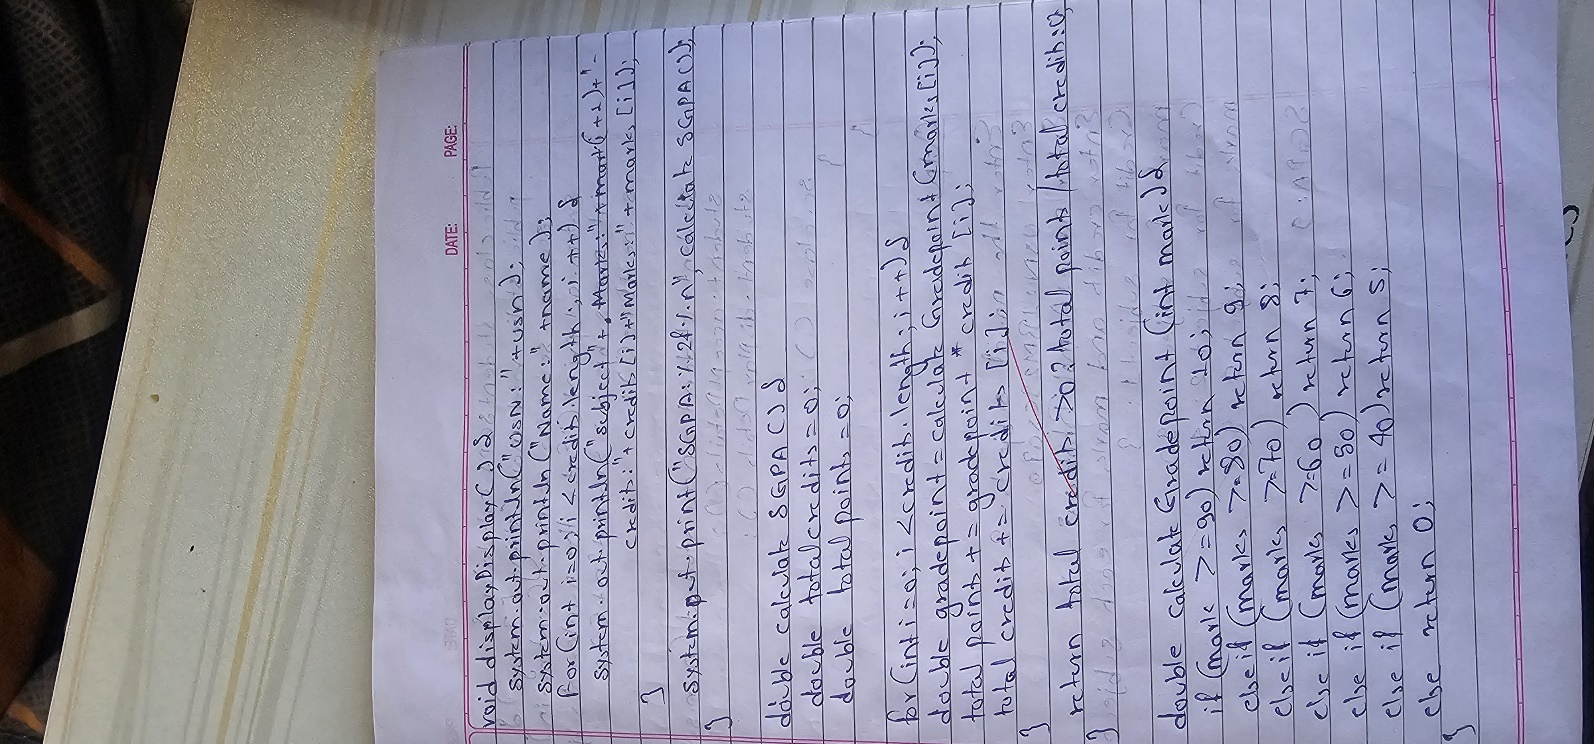 DATE: PAGE:
void displayDisplay() {
system.out.println("usn:"+usn);
system.out.println("Name:"+name);
for(int i=0; i<credits.length; i++) {
system.out.println("subject"+ Marks:"+mark(++)+"-
credit:"+credits[i]+"Marks:"+marks[i]);
}
system.out.print("SGPA:%.2f%n", calculate SGPA());
}
double calculate SGPA() {
double total credits=0;
double total points=0;
for(int i=0; i<credit.length; i++) {
double gradepoint = calculate Gradepoint(marks[i]);
total points += gradepoint * credit[i];
total credits += credits[i];
}
return total credits >0? total points/total credit:0;
}
double calculate Gradepoint (int marks) {
if (marks >=90) return 10;
else if (marks >=80) return 9;
else if (marks >=70) return 8;
else if (marks >=60) return 7;
else if (marks >=50) return 6;
else if (marks >= 40) return 5;
else return 0;
}